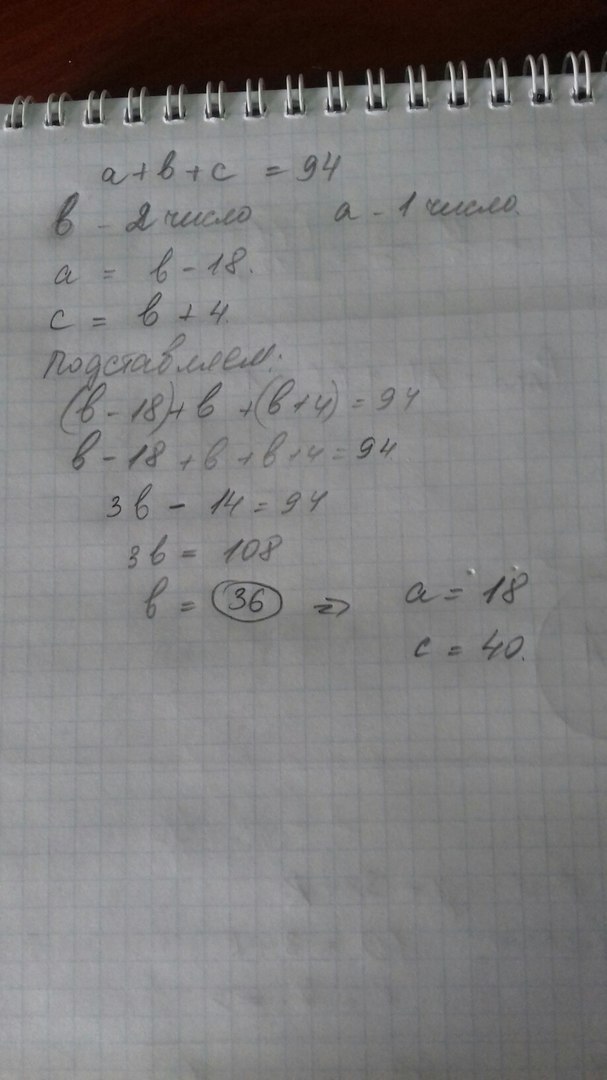 a + b + c = 94
b - 2 число a - 1 число.
a = b - 18.
c = b + 4.
Подставляем:
(b - 18) + b + (b + 4) = 94
b - 18 + b + b + 4 = 94
3b - 14 = 94
3b = 108
b = 36 => a = 18
c = 40.